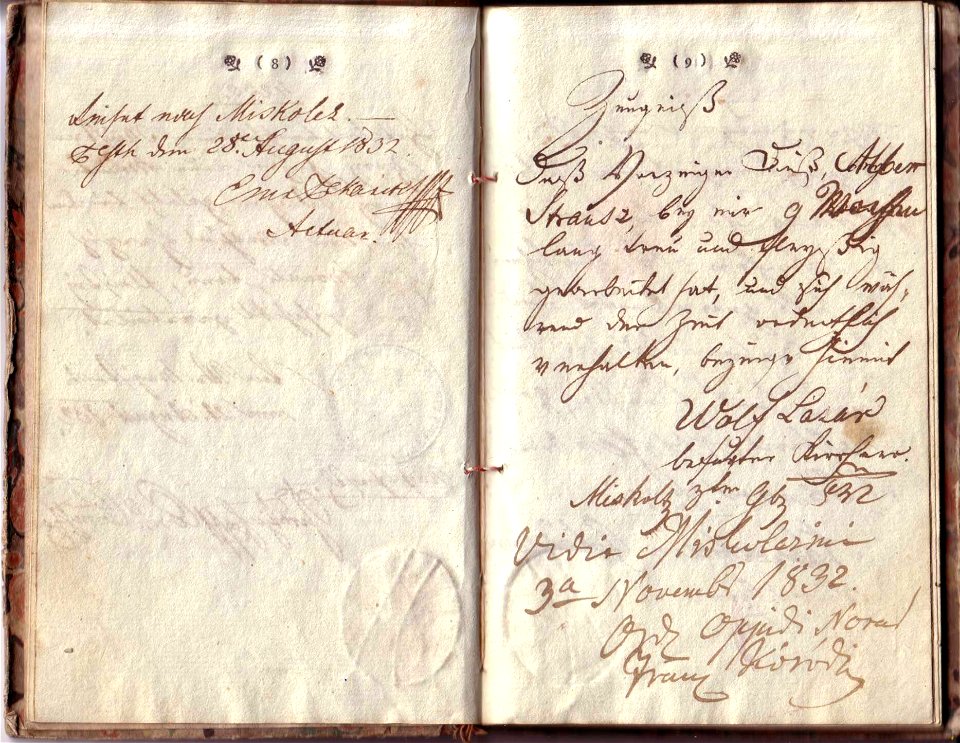 (8)
nach Miskolcz. —
Pesth den 28t August 1832.
Actuar.
(9)
Zeugniß
Daß Vorzeiger Dieß,
Strausz, bey mir 9 Wochen
lang treu und fleyßig
gearbeitet hat, und sich wäh-
rend der Zeit ordentlich
verhalten, bezeuge hiemit
Wolf Lazár
befugter Kirschner.
Miskoltz 2ten 9br 832
Vidit Miskolczini
3a Novembr 1832.
Oppidi
Franz